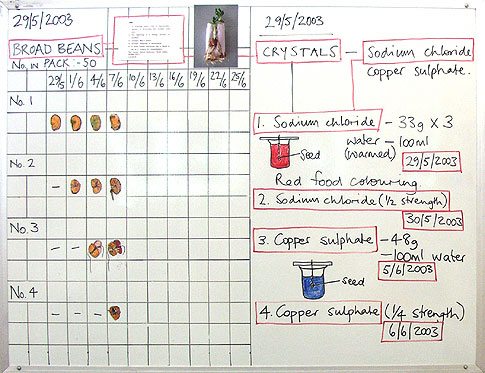 29/5/2003
BROAD BEANS
No. IN PACK:-50
29/5 1/6 4/6 7/6 10/6 13/6 16/6 19/6 22/6 25/6
No. 1
No. 2
No. 3
No. 4
29/5/2003
CRYSTALS — Sodium chloride
copper sulphate.
1. Sodium chloride - 33g x 3
water - 100ml
(warmed)
seed
29/5/2003
Red food colouring
2. Sodium chloride (1/2 strength)
30/5/2003
3. Copper sulphate - 48g
- 100ml water
5/6/2003
seed
4. Copper sulphate (1/4 strength)
6/6/2003